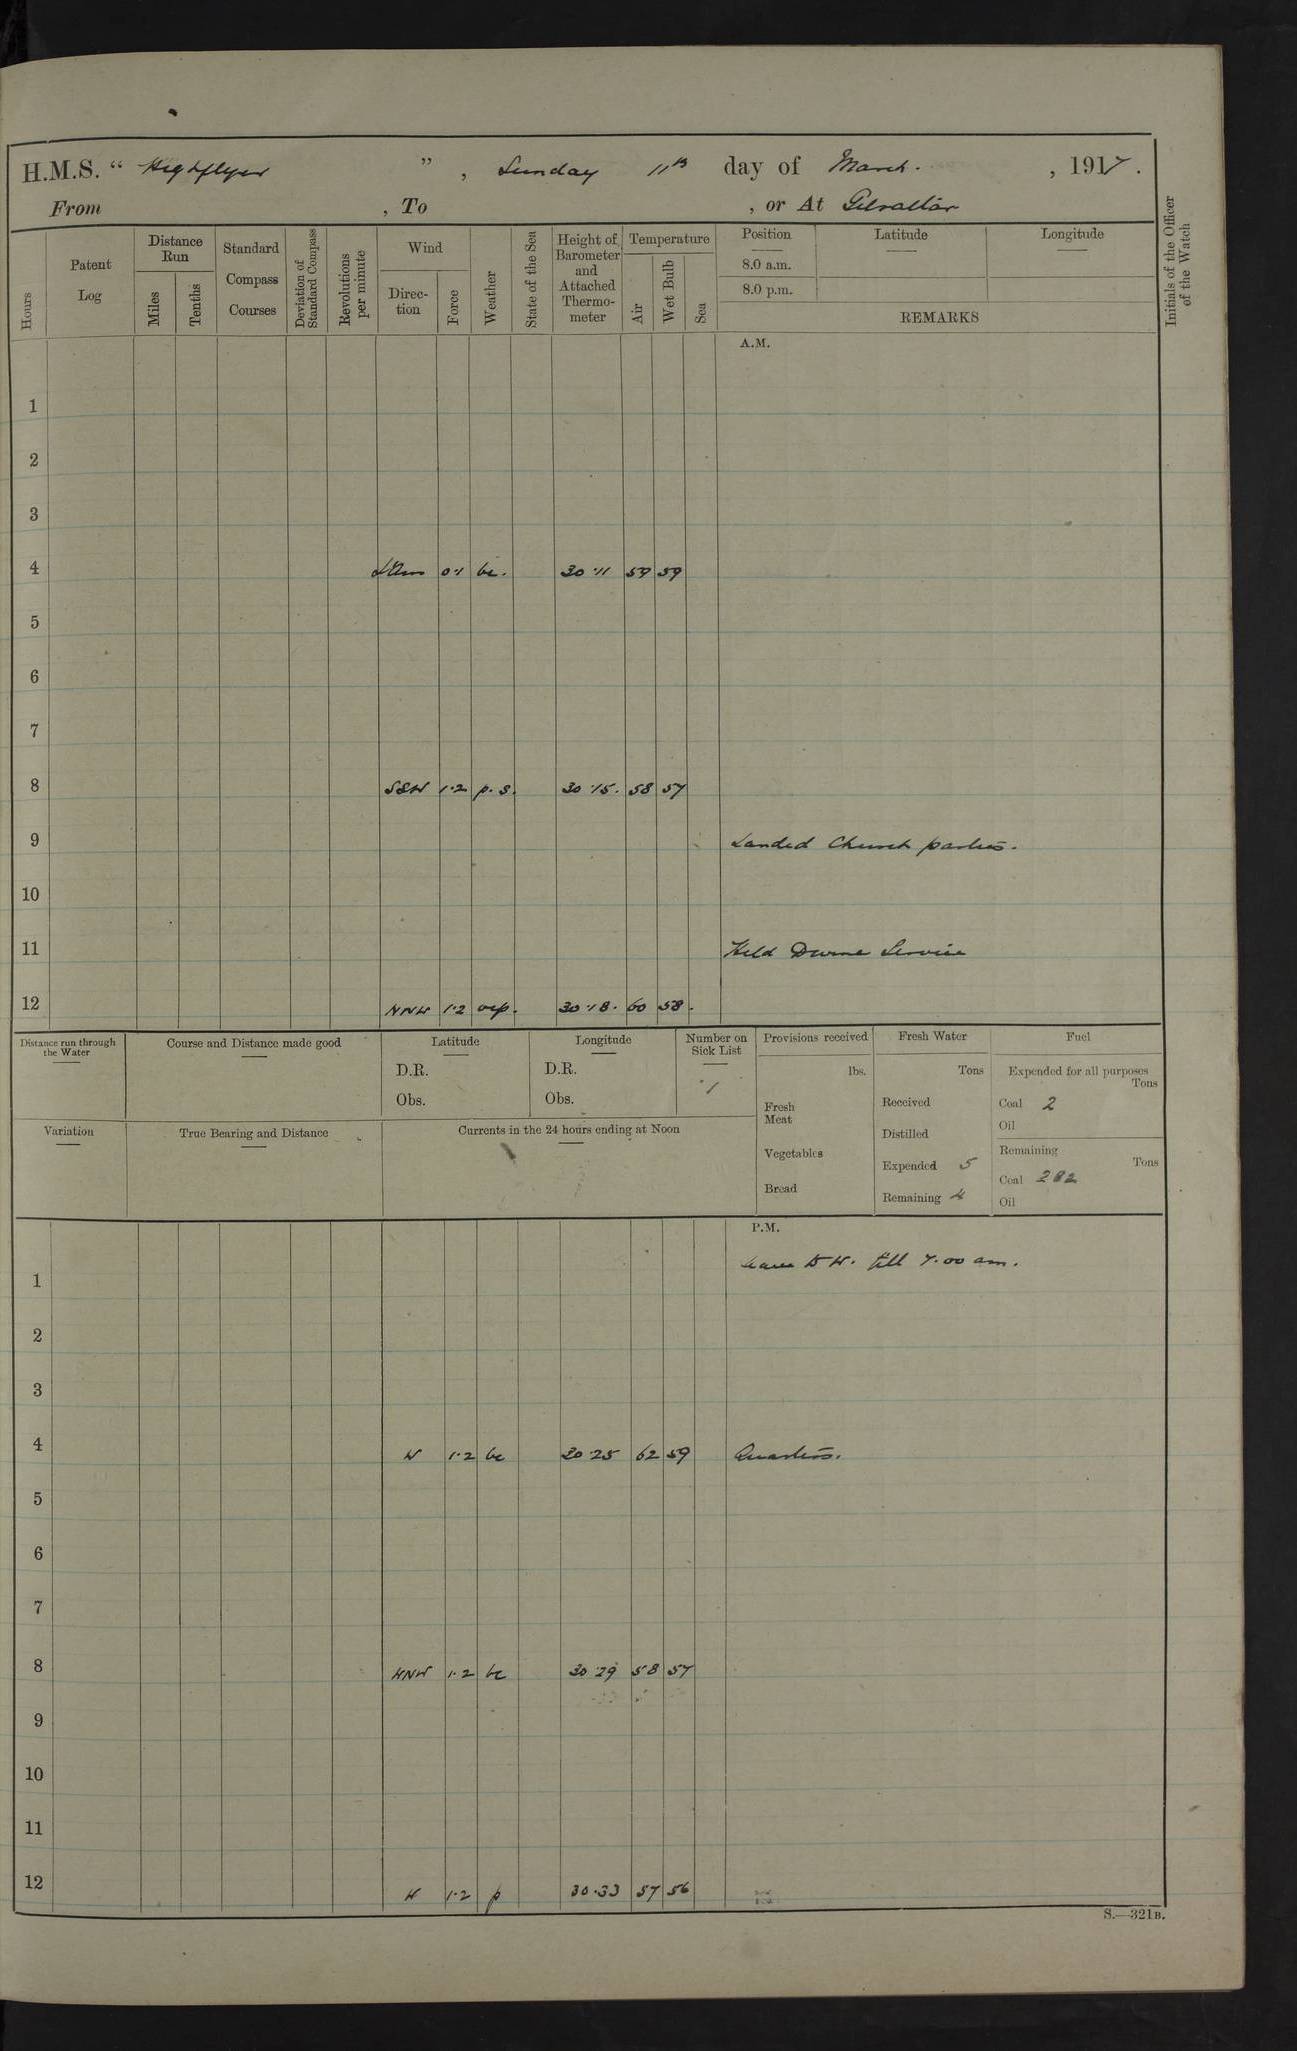 H.M.S. “ Highflyer ” , Sunday 11th day of March. , 1917 .
From , To , or At Gibraltar
Hours
Patent Log
Distance Run
Miles
Tenths
Standard Compass Courses
Deviation of Standard Compass
Revolutions per minute
Wind
Direction
Force
Weather
State of the Sea
Height of Barometer and Attached Thermometer
Temperature
Air
Wet Bulb
Sea
Position
8.0 a.m.
8.0 p.m.
Latitude
Longitude
REMARKS
Initials of the Officer of the Watch
A.M.
1
2
3
4 0·1 bc. 30·11 59 59
5
6
7
8 1·2 p.s. 30·15. 58 57
9 Landed Church parties.
10
11 Held Divine Service
12 NNW 1·2 ocp. 30·18. 60 58.
Distance run through the Water
Course and Distance made good
Latitude
D.R.
Obs.
Longitude
D.R.
Obs.
Number on Sick List
1
Variation
True Bearing and Distance
Currents in the 24 hours ending at Noon
Provisions received
lbs.
Fresh Meat
Vegetables
Bread
Fresh Water
Tons
Received
Distilled
Expended 5
Remaining 4
Fuel
Expended for all purposes
Tons
Coal 2
Oil
Remaining
Tons
Coal 282
Oil
P.M.
Leave to W. till 7.00 am.
1
2
3
4 W 1·2 bc 30·25 62 59 Quarters.
5
6
7
8 WNW 1·2 bc 30·29 58 57
9
10
11
12 W 1·2 p 30·33 57 56
S.—321B.